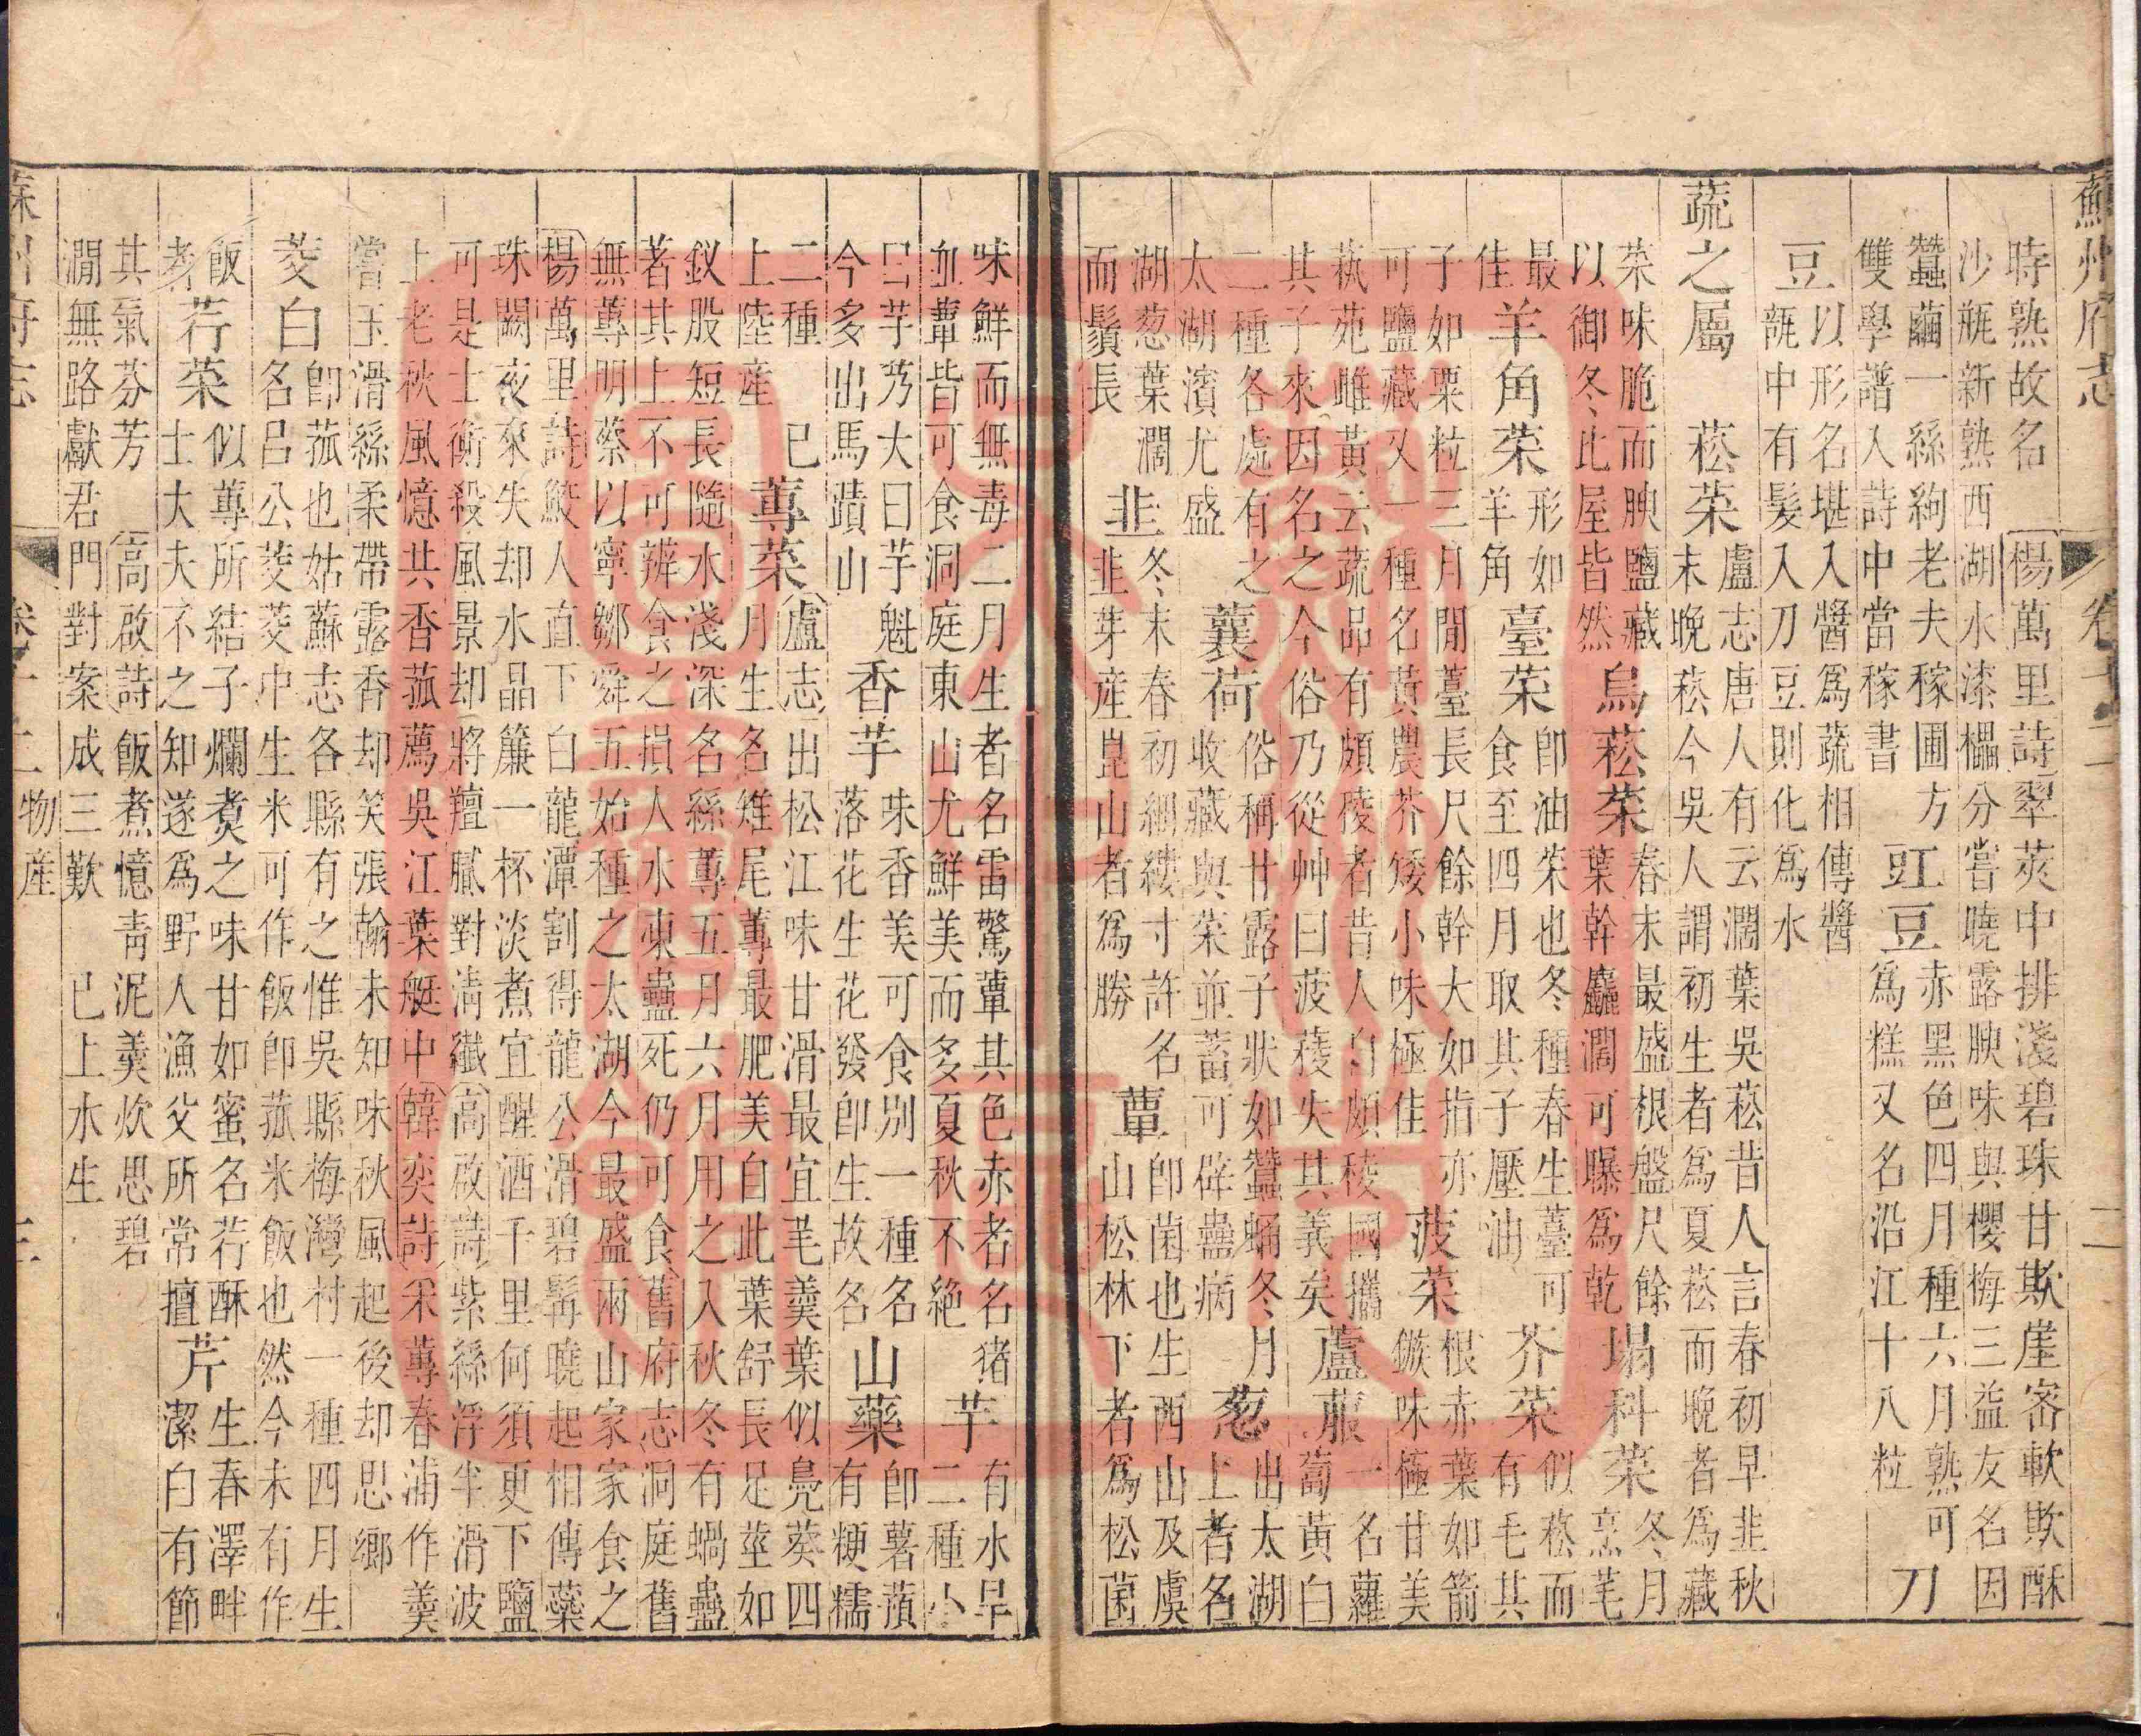 蘇州府志
卷十二
二
時熟故名楊萬里詩翠莢中排淺碧珠甘欺崖蜜軟欺酥
沙瓶新熟西湖水漆櫑分嘗曉露腴味與櫻梅三益友名因
蠶繭一絲絢老夫稼圃方
雙學譜人詩中當稼書
豇豆
赤黑色四月種六月熟可
為糕又名沿江十八粒
刀
豆
以形名堪入醬為蔬相傳醬
瓿中有髮入刀豆則化為水
蔬之屬
菘菜
盧志唐人有云濶葉吳菘昔人言春初早韭秋
末晚菘今吳人謂初生者為夏菘而晚者為藏
菜味脆而腴鹽藏
以御冬比屋皆然
烏菘菜
春末最盛根盤尺餘
葉幹麤濶可曝為乾
塌科菜
冬月
烹芼
最
佳
羊角菜
形如
羊角
臺菜
即油菜也冬種春生薹可
食至四月取其子壓油
芥菜
似菘而
有毛其
子如粟粒三月間薹長尺餘幹大如指亦
可鹽藏又一種名黃農芥矮小味極佳
菠菜
根赤葉如箭
鏃味極甘美
蓺苑雌黃云蔬品有頗稜者昔人自頗稜國攜
其子來因名之今俗乃從艸曰菠薐失其義矣
蘆菔
一名蘿
蔔黃白
二種各處有之
太湖濱尤盛
蘘荷
俗稱甘露子狀如蠶蛹冬月
收藏與菜並蓄可辟蠱病
葱
出太湖
上者名
湖葱葉濶
而鬚長
韭
冬末春初細縷寸許名
韭芽產崑山者為勝
蕈
即菌也生西山及虞
山松林下者為松菌
味鮮而無毒二月生者名雷驚蕈其色赤者名猪
血蕈皆可食洞庭東山尤鮮美而多夏秋不絕
芋
有水旱
二種小
曰芋艿大曰芋魁
今多出馬蹟山
香芋
味香美可食別一種名
落花生花發即生故名
山藥
即薯蕷
有粳糯
二種 已
上陸產
蓴菜
盧志出松江味甘滑最宜芼羹葉似鳧葵四
月生名雉尾蓴最肥美自此葉舒長足莖如
釵股短長隨水淺深名絲蓴五月六月用之入秋冬有蝸蠱
著其上不可辨食之損人水凍蠱死仍可食舊府志洞庭舊
無蓴明蔡以寧鄒舜五始種之太湖今最盛兩山家家食之
楊萬里詩鮫人直下白龍潭割得龍公滑碧髯曉起相傳蘂
珠闕夜來失却水晶簾一杯淡煮宜醒酒千里何須更下鹽
可是士衡殺風景却將羶膩對清纖高啟詩紫絲浮半滑波
上老秋風憶共香菰薦吳江葉艇中韓奕詩采蓴春浦作羹
嘗玉滑絲柔帶露香却笑張翰未知味秋風起後却思鄉
茭白
即菰也姑蘇志各縣有之惟吳縣梅灣村一種四月生
名呂公茭茭中生米可作飯即菰米飯也然今未有作
飯
者
荇菜
似蓴所結子爛煑之味甘如蜜名荇酥
士大夫不之知遂為野人漁父所常擅
芹
生春澤畔
潔白有節
其氣芬芳高啟詩飯煮憶青泥羹炊思碧
澗無路獻君門對案成三歎 已上水生
蘇州府志
卷十二物產
三